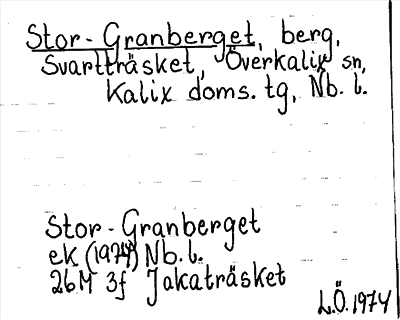 Stor-Granberget, berg,
Svartträsket, Överkalix sn,
Kalix doms. tg, Nb. l.
Stor-Granberget
ek (1974) Nb. l.
26M 3f Jakaträsket
L.Ö. 1974